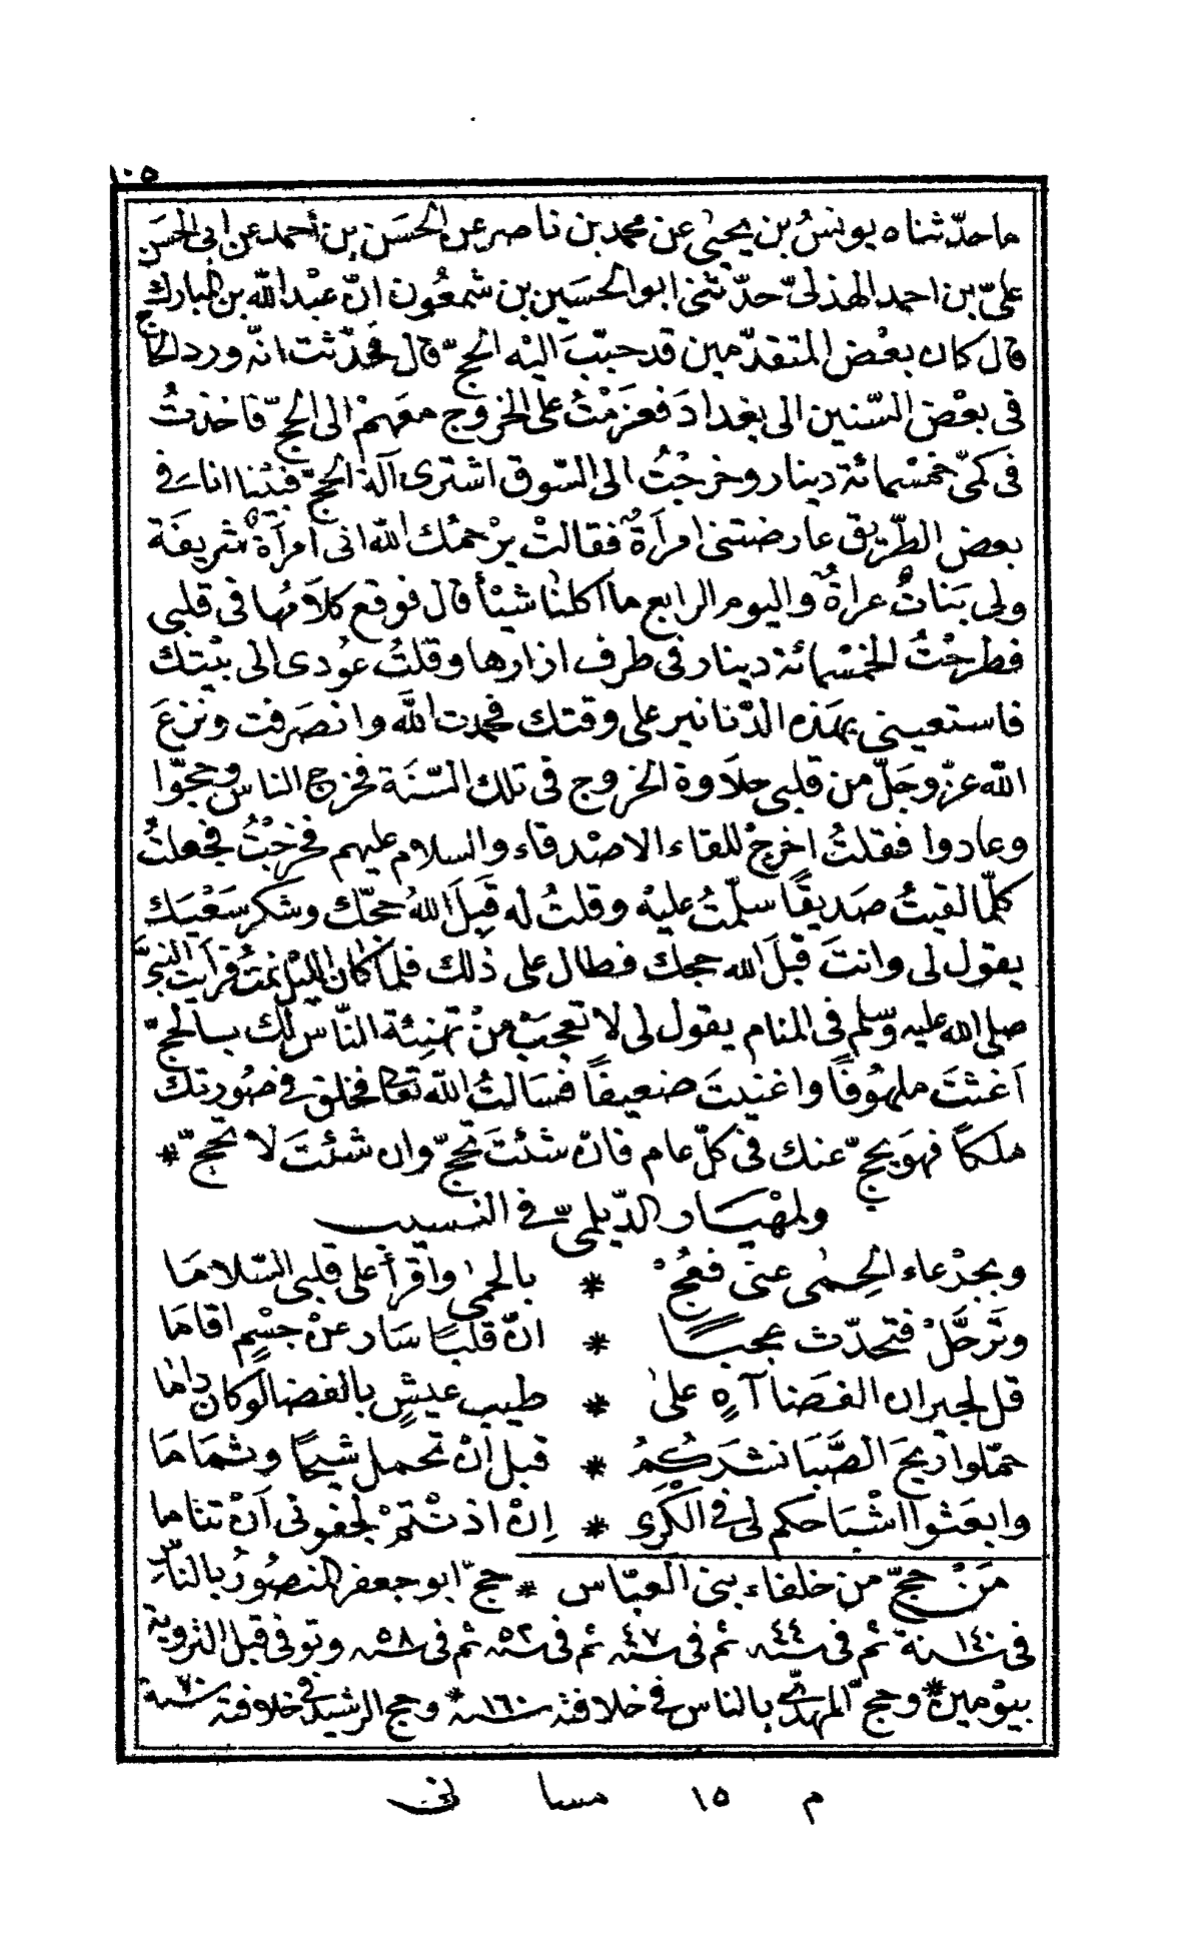 ١٠٥
ما حدّثناه يونسُ بن يحيىٰ عن محمد بن ناصر عن الحسَن بن أحمد عن ابى الحسَن
علىّ بن احمد الهذلىّ حدّثنى ابو الحسَين بن شمعُون انّ عبْد الله بن المبارك
قال كان بعْض المتقدّمين قد حبّبَ اليْه الحجّ قال فحُدّثت انّه ورد الحاج
فى بعْض السّنين الى بغدادَ فعزمْتُ على الخروج معَهمْ الى الحجّ فاخذتُ
فى كمىّ خمْسمائة دينار وخرجْتُ الى السّوق اشترى آلة الحجّ فبيْنا انا فى
بعض الطّريق عارضتنى امرأةٌ فقالتْ يرْحمُك الله انى امرأةٌ شريفَة
ولى بَناتٌ عراةٌ واليوم الرابع ما اكلنا شيْأ قال فوقع كلاَمُها فى قلبى
فطرحْتُ الخمْسمائة دينار فى طرف ازارها وقلتُ عوُدى الى بيْتك
فاستعينى بهَذه الدّنانير على وقتك فحمدت اللهَ وانصَرفت ونزعَ
الله عزّ وجَلّ من قلبى حلاَوة الخروج فى تلك السّنَة فخرج الناسُ وحجّوا
وعادوا فقلتُ اخرجُ للقاء الاصْدقاء والسلام عليهم فخرجْتُ فجعلتُ
كلّما لقيتُ صَديقًا سلّمتُ عليْه وقلتُ له قَبِلَ اللهُ حجّك وشكر سَعْيَك
يقول لى وانتَ قبلَ الله حجك فطال على ذلك فلما كان الليْل نمتُ فرأيت النبىَّ
صلى الله عليه وسلم فى المنام يقول لى لا تعجَبْ منْ تهنِئة النّاس لك بالحجّ
اَغثتَ ملهوُفًا واغنيتَ ضعيفًا فسَالتُ الله تعالى فخلق فى صُورتك
ملَكاً فهوَ يحجّ عنك فى كلّ عام فان شئتَ تحجّ وان شئتَ لا تحجّ *
ولمهْيَار الدّيلمىّ فى النسيب
وبجرْعاء الحِمٰى عنّى فعُجْ * بالحمىٰ واقرأ على قلبى السّلاما
وتَرحَّلْ فتحدّث عجبًا * انّ قلبًا سَار عنْ جسْمٍ اقامَا
قل لجيران الغَضا آهٍ علىٰ * طيب عيشٍ بالغضا لو كان دامَا
حمّلوا ريحَ الصَّبَا نشرَكُمُ * قبل أنْ تحمل شيحًا وثمَامَا
وابعَثوا اشْبَاحكم لى فى الكَرى * اِنْ اذنْتمْ لجفونى اَنْ تناما
مَنْ حجّ من خلفاء بنى العبّاس * حجّ ابو جعفر المنصُورُ بالناس
فى سنة ١٤٠ ثم فى سنه ٤٤ ثم فى سنه ٤٧ ثم فى سنه ٥٢ ثم فى سنه ٥٨ وتوفى قبل التروية
بيوْمين * وحجّ المهدىّ بالناس فى خلافته سنه ١٦٠ * وحج الرشيد فى خلافته سنه ٧٠
م ١٥ مسا نى